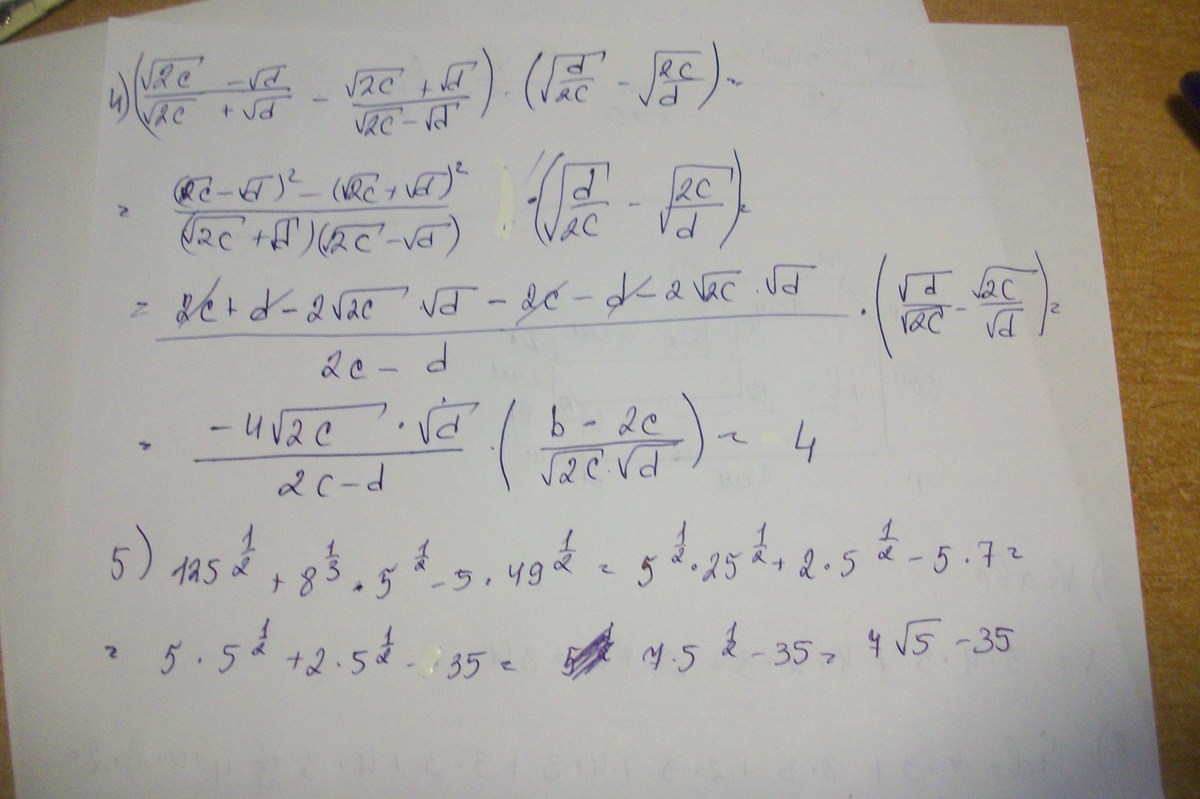 4) ((√2c - √d)/(√2c + √d) - (√2c + √d)/(√2c - √d)) · (√(d/2c) - √(2c/d)) =
= ((√2c - √d)² - (√2c + √d)²)/((√2c + √d)(√2c - √d)) · (√(d/2c) - √(2c/d)) =
= (2c + d - 2√2c · √d - 2c - d - 2√2c · √d)/(2c - d) · (√d/√2c - √2c/√d) =
= (-4√2c · √d)/(2c - d) · ((b - 2c)/(√2c · √d)) = 4
5) 125^(1/2) + 8^(1/3) · 5^(1/2) - 5 · 49^(1/2) = 5^(1/2) · 25^(1/2) + 2 · 5^(1/2) - 5 · 7 =
= 5 · 5^(1/2) + 2 · 5^(1/2) - 35 = 7 · 5^(1/2) - 35 = 7√5 - 35